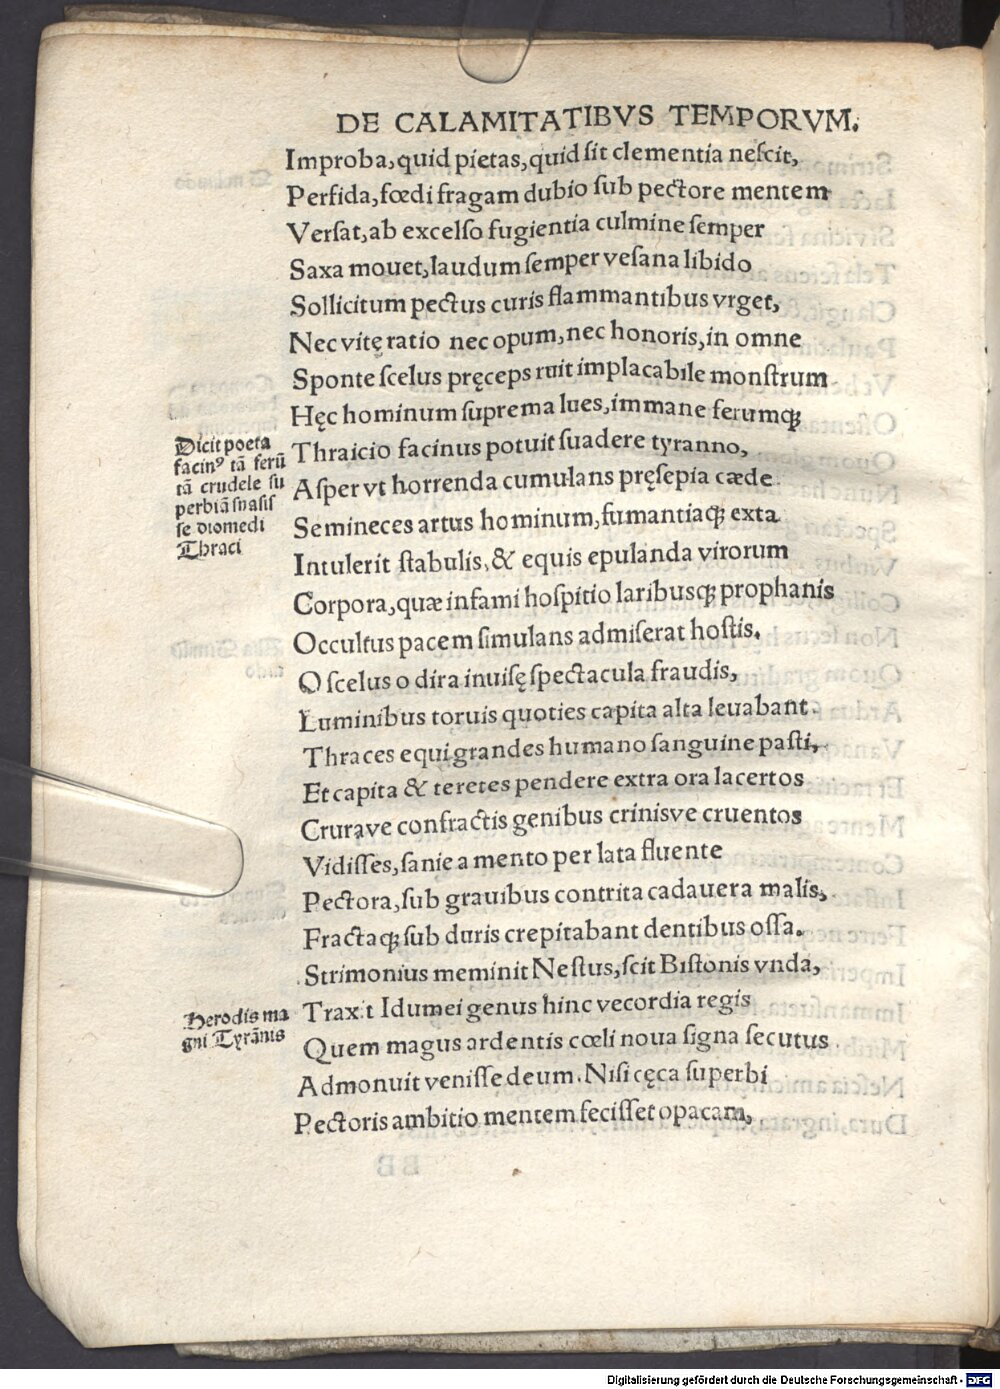 DE CALAMITATIBVS TEMPORVM.
Improba, quid pietas, quid ſit clementia neſcit,
Perfida, fœdi fragam dubio ſub pectore mentem
Verſat, ab excelſo fugientia culmine ſemper
Saxa mouet, laudum ſemper veſana libido
Sollicitum pectus curis flammantibus vrget,
Nec vitę ratio nec opum, nec honoris, in omne
Sponte ſcelus pręceps ruit implacabile monſtrum
Hęc hominum ſuprema lues, immane ferumqꝫ
Dicit poeta
facinꝰ tā ferū
tā crudele ſu
perbiā ſuaſiſ
ſe diomedi
Thraci
Thraicio facinus potuit ſuadere tyranno,
Aſper vt horrenda cumulans pręſepia cæde
Semineces artus hominum, fumantiaqꝫ exta
Intulerit ſtabulis, & equis epulanda virorum
Corpora, quæ infami hoſpitio laribusqꝫ prophanis
Occultus pacem ſimulans admiſerat hoſtis.
O ſcelus o dira inuiſę ſpectacula fraudis,
Luminibus toruis quoties capita alta leuabant.
Thraces equi grandes humano ſanguine paſti,
Et capita & teretes pendere extra ora lacertos
Crurave confractis genibus crinisve cruentos
Vidiſſes, ſanie a mento per lata fluente
Pectora, ſub grauibus contrita cadauera malis,
Fractaqꝫ ſub duris crepitabant dentibus oſſa.
Strimonius meminit Neſtus, ſcit Biſtonis vnda,
Herodis ma
gni Tyrānis
Traxit Idumei genus hinc vecordia regis
Quem magus ardentis cœli noua ſigna ſecutus
Admonuit veniſſe deum. Niſi cęca ſuperbi
Pectoris ambitio mentem feciſſet opacam,
Digitalisierung gefördert durch die Deutsche Forschungsgemeinschaft - DFG